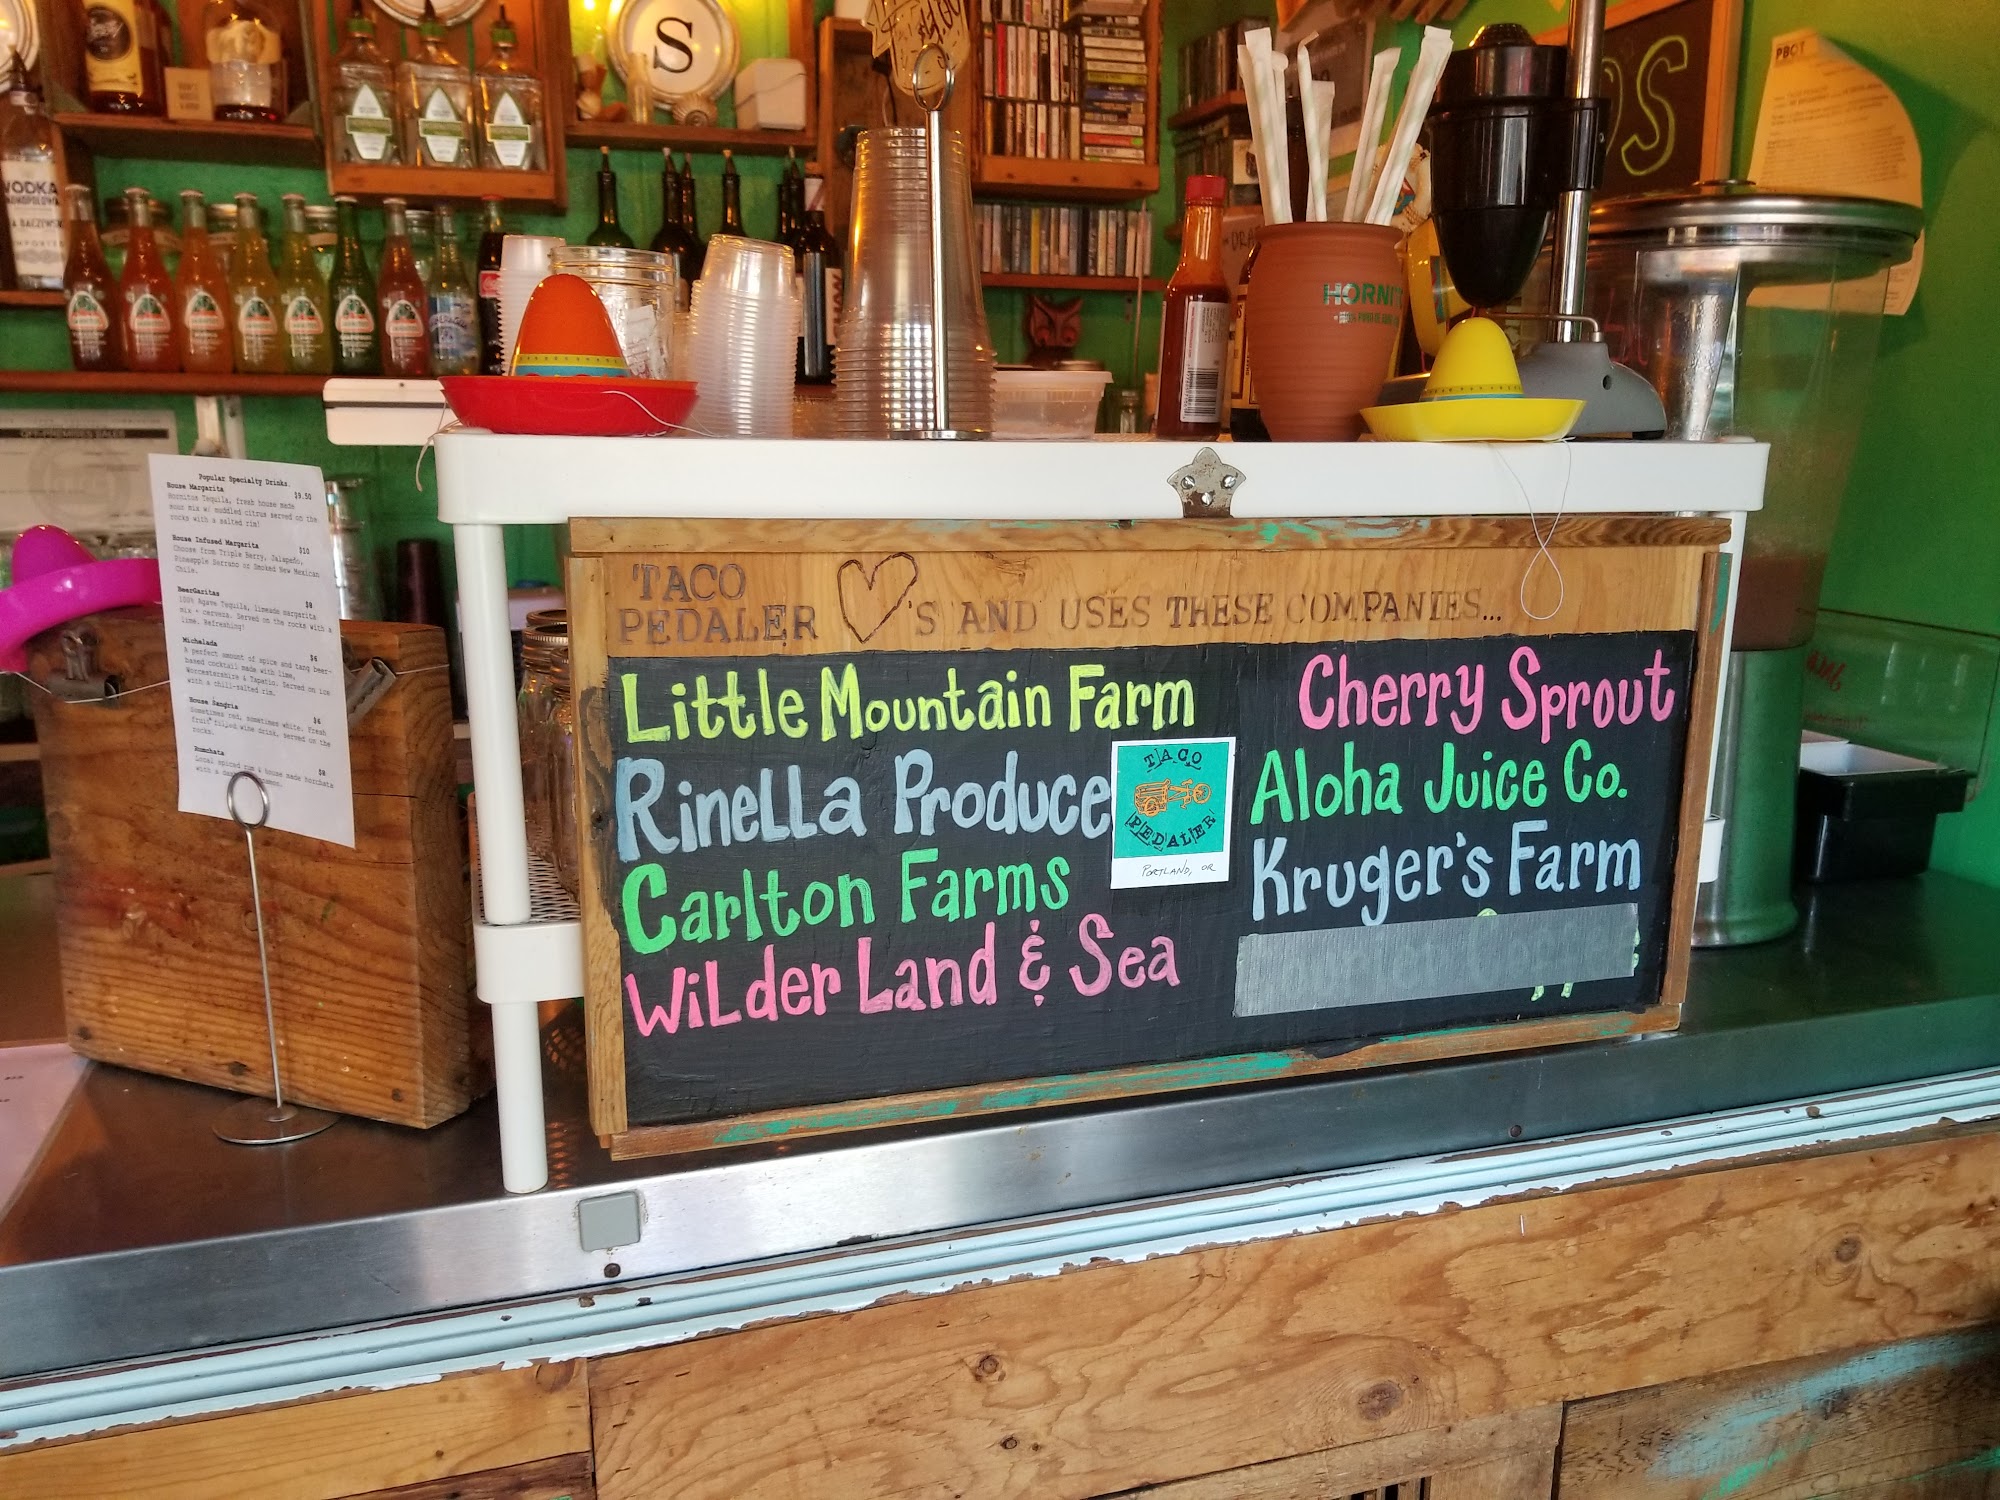 S
VODKA
MONOPOLOWA
IMPORTED
PBOT
OS
HORNIT
Popular Specialty Drinks
House Margarita $9.50
Hornitos Tequila, fresh house made
sour mix w/ muddled citrus served on the
rocks with a salted rim!
House Infused Margarita $10
Choose from Triple Berry, Jalapeño,
Pineapple Serrano or Smoked New Mexican
Chile.
BeerGaritas $8
100% Agave Tequila, limeade margarita
mix + cerveza. Served on the rocks with a
lime. Refreshing!
Michelada $6
A perfect amount of spice and tang beer-
based cocktail made with lime,
Worcestershire & Tapatio. Served on ice
with a chili-salted rim.
House Sangria $6
Sometimes red, sometimes white. Fresh
fruit filled wine drink, served on the
rocks.
Rumchata $8
Local spiced rum & house made horchata
with a
'TACO
PEDALER 'S AND USES THESE COMPANIES...
Little Mountain Farm
Rinella Produce
Carlton Farms
Wilder Land & Sea
TACO
PEDALER
PORTLAND, OR
Cherry Sprout
Aloha Juice Co.
Kruger's Farm